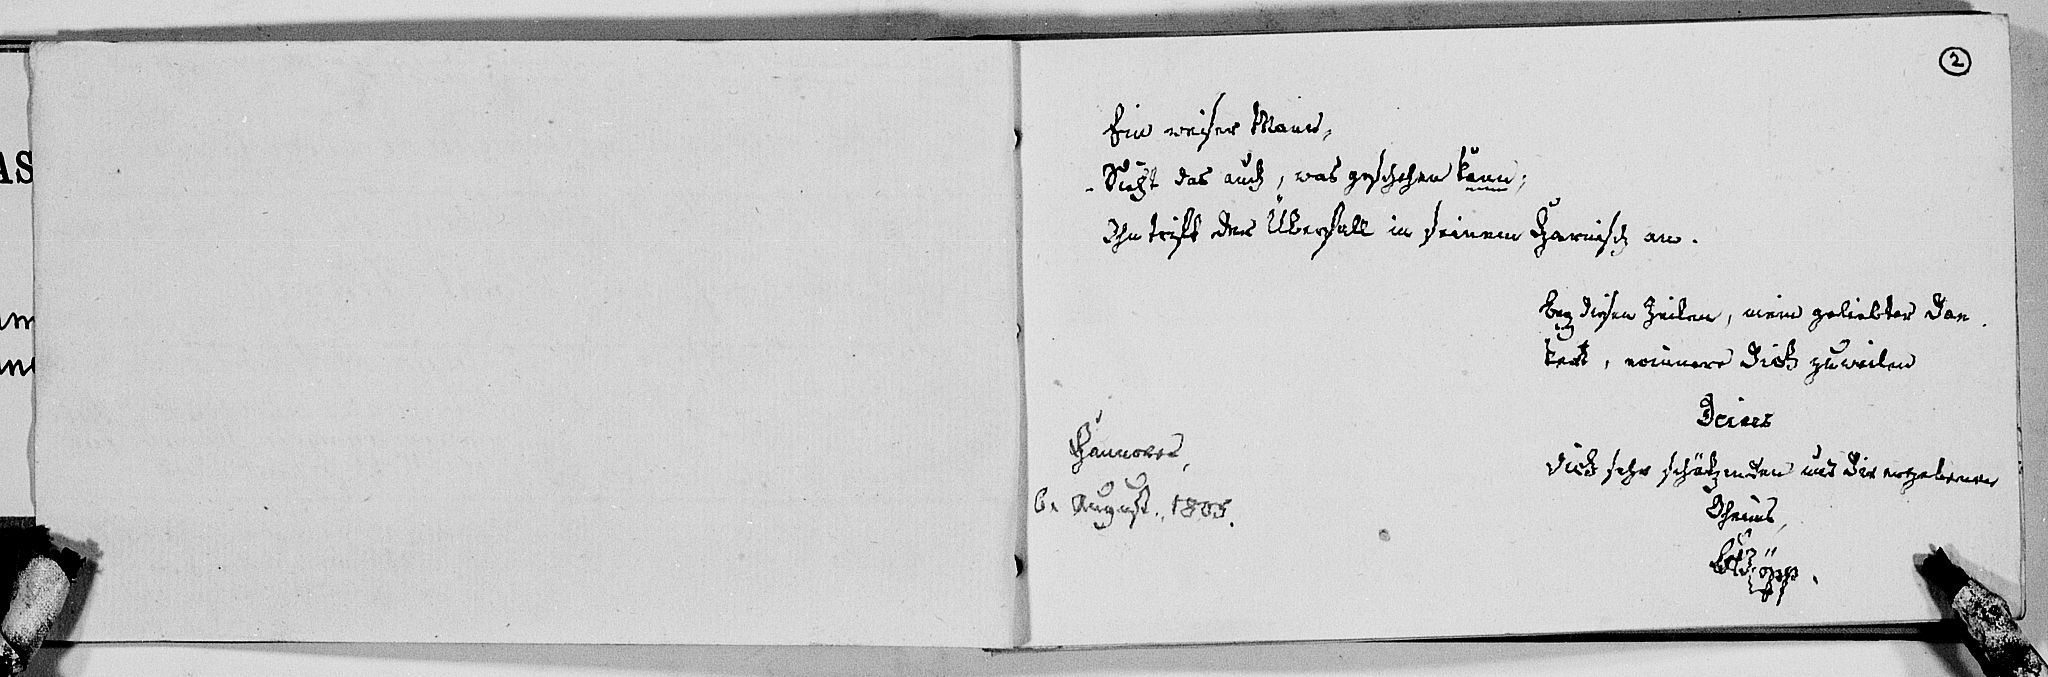 AS
2
Ein weiser Mann,
Sieht das auch, was geschehen kann;
Ihn trifft der Überfall in seinem Harnisch an.
Bey diesen Zeilen, mein geliebter
erinnere Dich zuweilen
Deines
Dich sehr schätzenden und Dir ergebenen
Oheims,
Hannover,
August. 1805.